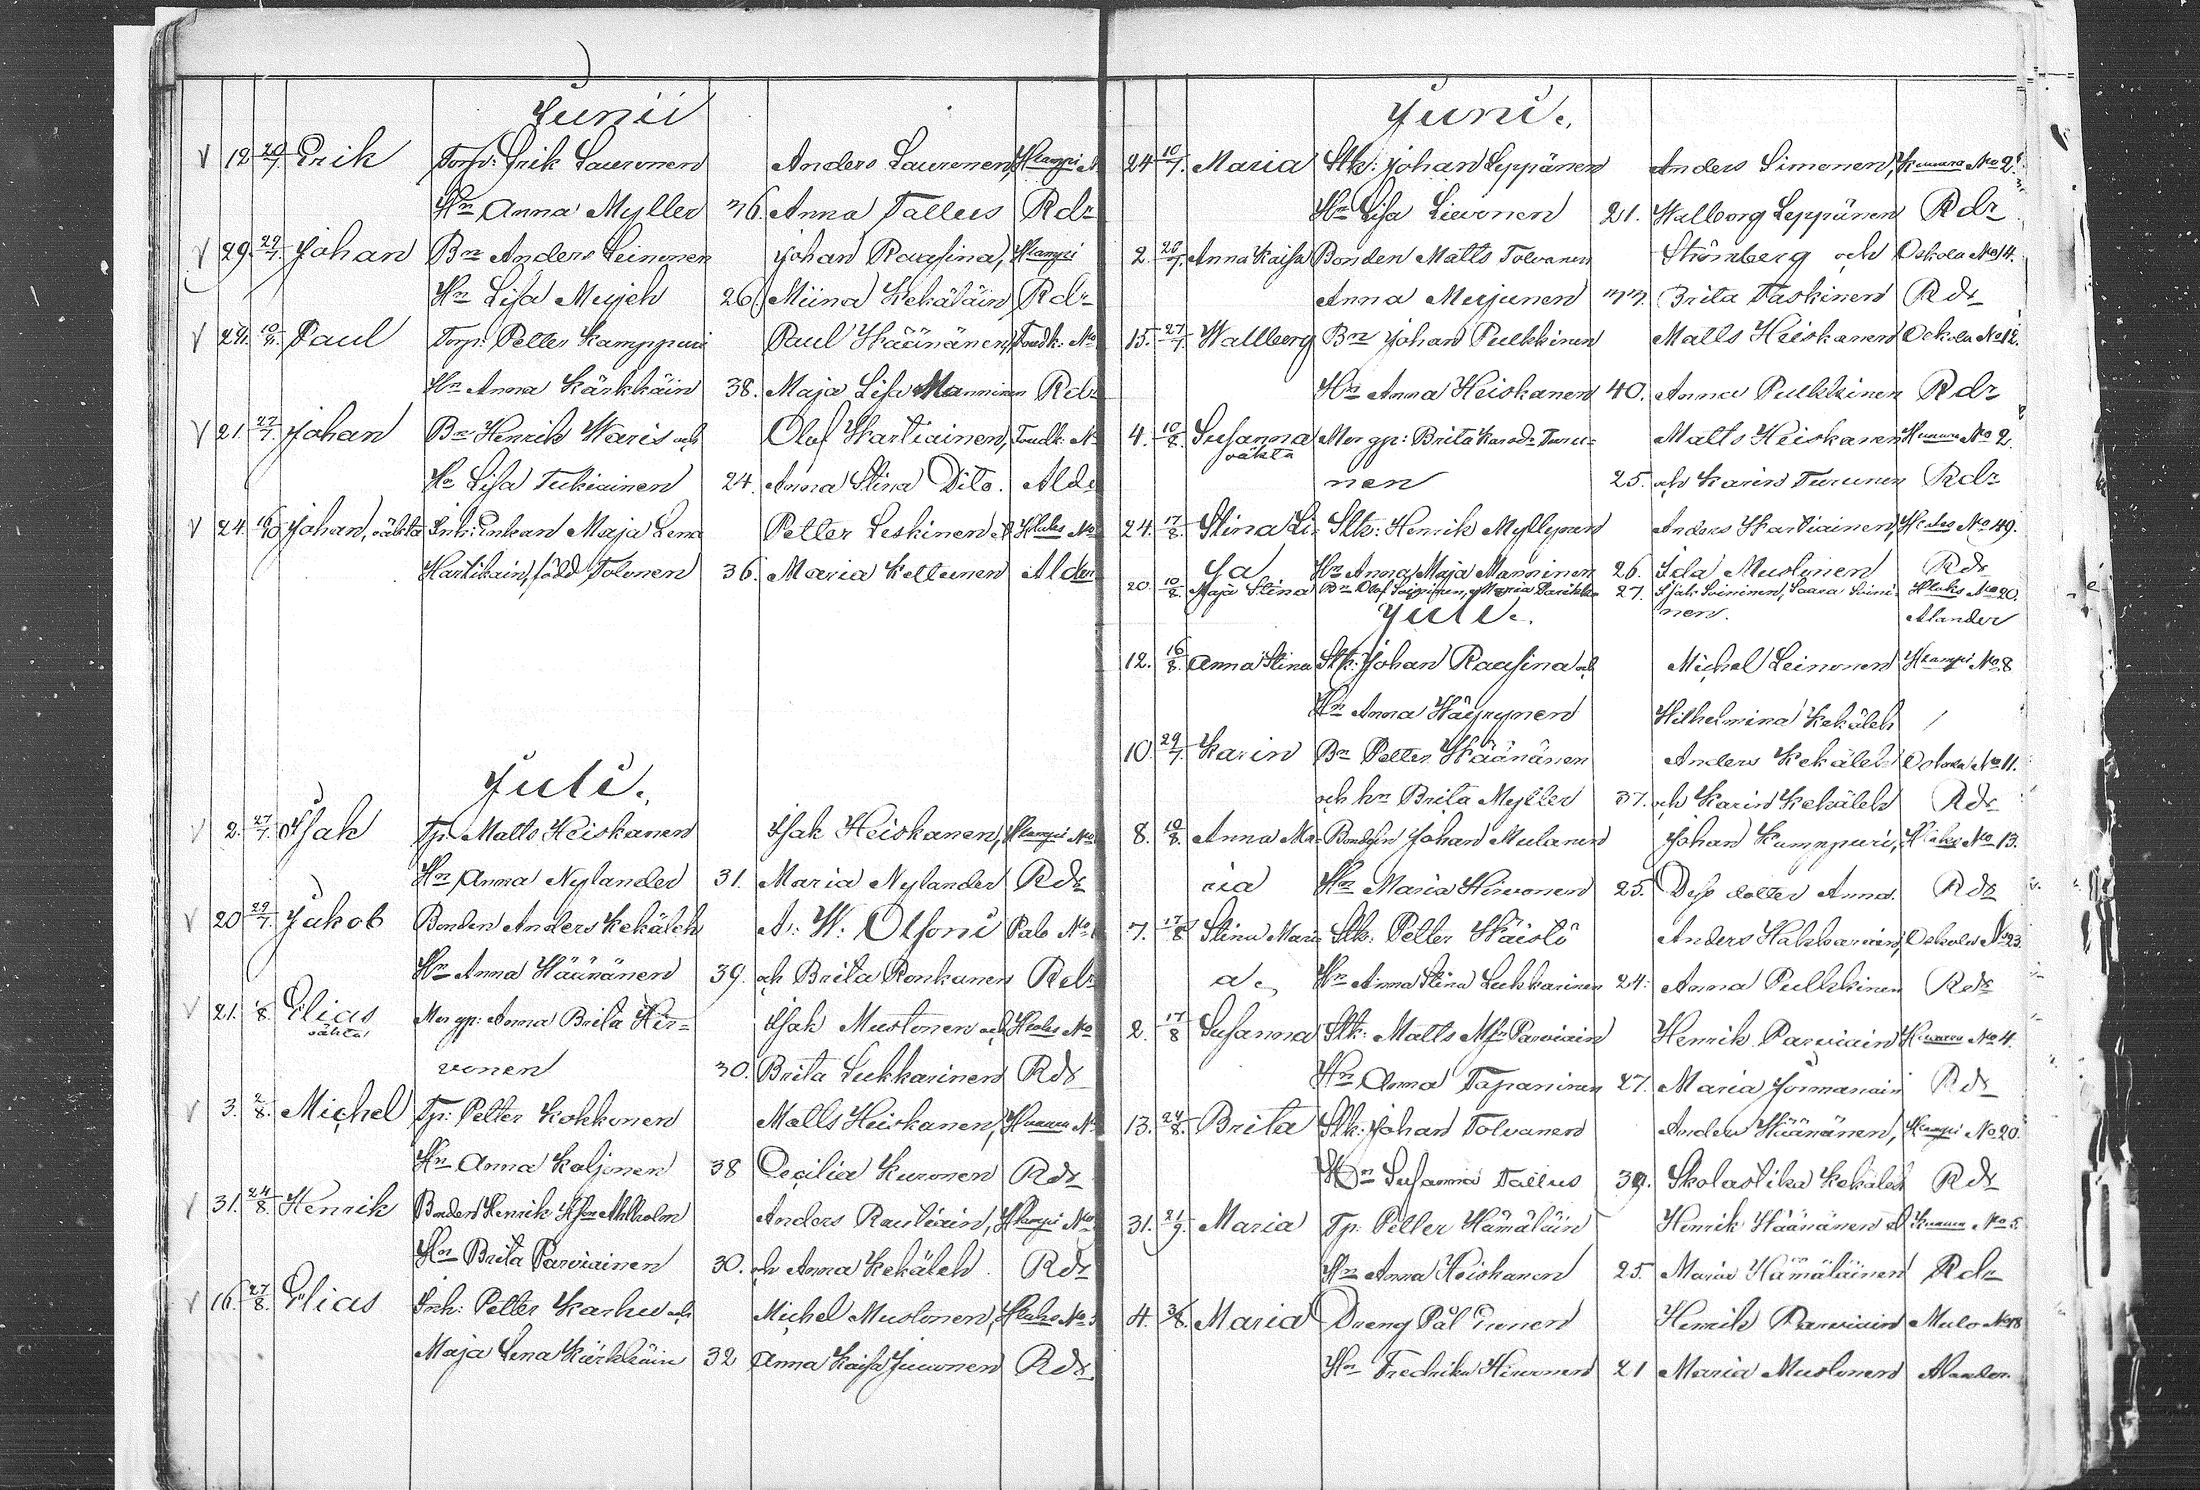 Junii
12 20/7. Erik Torp: Erik Lauronen Anders Lauronen,
Hn Anna Myller 36. Anna Tallus Rdr
29. 29/7. Johan Bn Anders Leinonen Johan Raasina,
Hn Lisa Meijeh 26. Miina Kekäläin Rdr
24. 10/8. Paul Torp: Petter Kamppuri Paul Väänänen, No
Hn Anna Kärkkäin 38. Maja Lisa Manninen Rdr
21. 27/7. Johan Bn Henrik Waris och Olof Wartiainen,
Hn Lisa Tukiainen 24. Anna Stina Dito. Ald
24. Johan, oäkta Inh: Enkan Maja Lena Petter Leskinen No
Hartikain, född Tolonen 36. Maria Kettunen Alder
Juli.
2. 27/7. Isak Tp: Matts Heiskanen Isak Heiskanen, No
Hn Anna Nylander 31. Maria Nylander Rdr
20 29/7. Jakob Bonden Anders Kekäleh A: W: Olsoni No
Hn Anna Väänänen 39. och Brita Ronkanen Rdr
21. Elias oäkta Anna Brita Hir=
Isak Mustonen och No
vonen 30. Brita Lukkarinen Rdr
3. 2/8. Michel Tp: Petter Kokkonen Matts Heiskanen, No
Hn Anna Koljonen 38 Cecilia Kuronen Rdr
31. 24/8. Henrik Bonden Henrik Ahlholm Anders Rautiain, No
Hn Brita Parviainen 30. och Anna Kekäleh. Rdr
16. 27/8. Elias Inh: Petter Karhu och Michel Mustonen, No
Maja Lena Kärkkäin 32 Anna Kaisa Juvonen Rdr
Juni.
24 10/7. Maria Stk: Johan Leppänen Anders Simonen, No 2.
Hn Lisa Lievonen 21. Walborg Leppänen Rdr
2. 20/7. Anna Kaisa Bonden Matts Tolvanen Strömberg och Oskola No 14.
Anna Meijunen 33. Brita Taskinen Rdr
15. 27/7. Wallborg Bn Johan Pulkkinen Matts Heiskanen Oskola No 12.
Hn Anna Heiskanen 40. Anna Pulkkinen Rdr
4. 10/8. Susanna oäkta Brita Turu= Matts Heiskanen No 2.
nen 25. och Karin Turunen Rdr
24. 17/8. Stina Li- Stk: Henrik Myllynen Anders Wartiainen, No 49.
sa Hn Anna Maja Manninen 26. Ida Mustonen Rdr
20. 10/8. Maja Stina Bn Olof Soininen, Maria Parikka 27. Isak Soininen, Saara Soini- No 20
Juli.
nen. Alander
12. 16/8. Anna Stina Stk: Johan Raasina och Michel Leinonen No 8
Hn Anna Häyrynen Wilhelmina Kekäleh
10. 29/7. Karin Bn Petter Väänänen Anders Kekäleh Oskola No 11.
och hn Brita Myller 37. och Karin Kekäleh Rdr
8. 10/8. Anna Ma- Johan Mulanen Johan Kamppuri, No 13.
ria Hn Maria Hirvonen 25. Dess dotter Anna. Rdr
7. 17/8 Stina Mari- Stk: Petter Väistö Anders Hakkarain, Oskola No 23.
a. Hn Anna Stina Lukkarinen 24. Anna Pulkkinen Rdr
2. 17/8 Susanna Stk: Matts Parviain Henrik Parviain No 4.
Hn Anna Tapaninen 27. Maria Jormanain Rdr
13. 24/8. Brita Stk: Johan Tolvanen Anders Väänänen, No 20.
Hn Susanna Tallus 39. Skolastika Kekäleh Rdr
31. 21/9. Maria Tp: Petter Hämäläin Henrik Väänänen No 5.
Hn Anna Heiskanen 25. Maria Hämäläinen Rdr
4. Maria Dreng Pål Ironen Henrik Parviain Mulo No 18
Hn Fredrika Hirvonen 21 Maria Mustonen Alander.